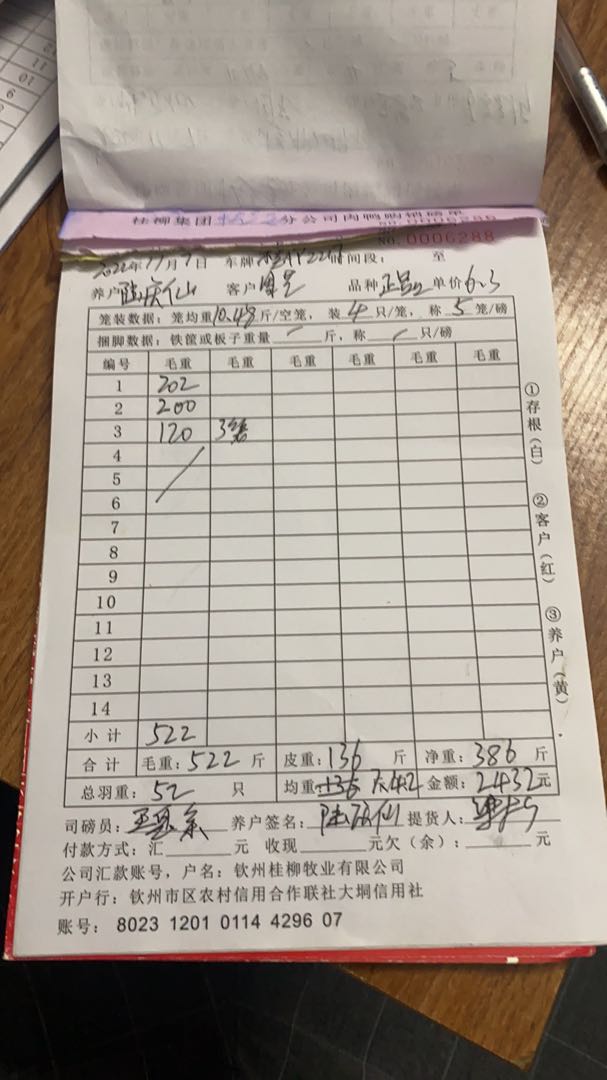 桂柳集团 分公司肉鸭购销磅单
No. 0006288
2022年11月7日 车牌 时间段: 至
养户 陆庆仙 客户 品种 单价 6.3
笼装数据: 笼均重10.48斤/空笼, 装4只/笼, 称5笼/磅
捆脚数据: 铁筐或板子重量 斤, 称 只/磅
编号 毛重 毛重 毛重 毛重 毛重 毛重
1 202
2 200
3 120 3笼
4
5
6
7
8
9
10
11
12
13
14
小计 522
合计 毛重: 522斤 皮重: 136斤 净重: 386斤
总羽重: 52 只 均重 7.42 金额: 2432元
司磅员: 养户签名: 陆庆仙 提货人:
付款方式: 汇 元 收现 元欠(余): 元
公司汇款账号, 户名: 钦州桂柳牧业有限公司
开户行: 钦州市区农村信用合作联社大垌信用社
账号: 8023 1201 0114 4296 07
①存根(白)
②客户(红)
③养户(黄)